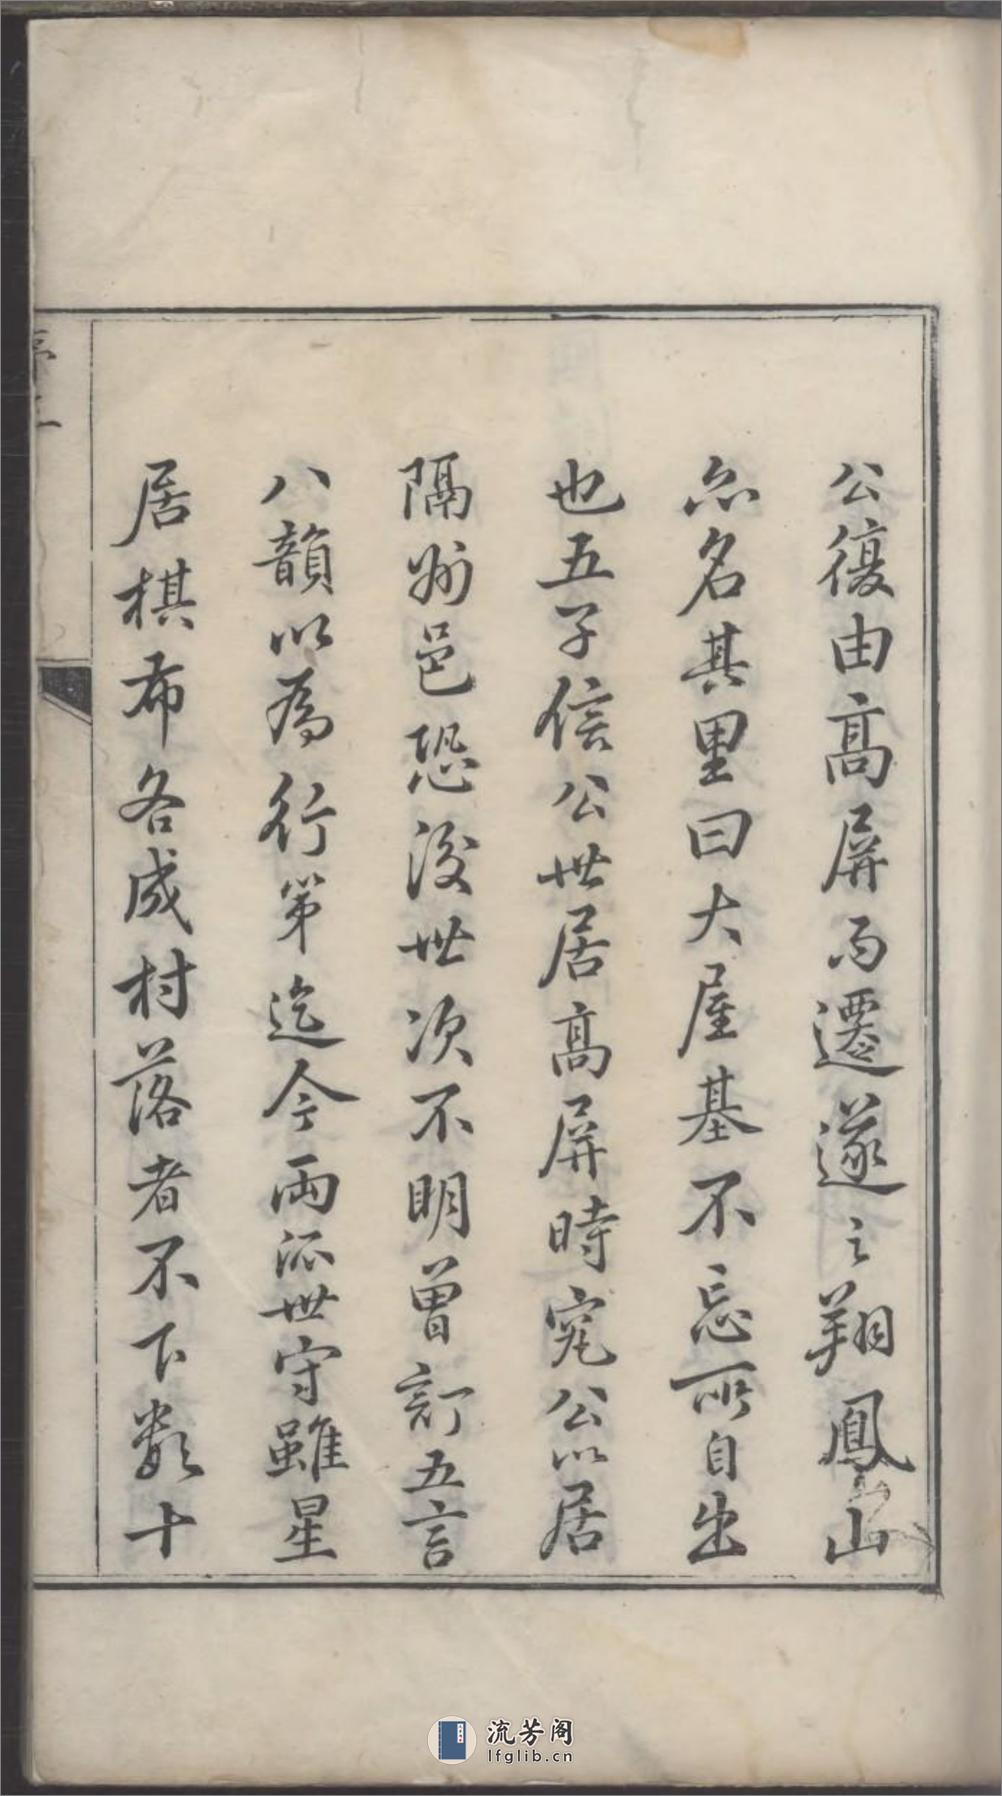 公復由高屏而遷遂之翔鳳山
亦名其里曰大屋基不忘所自出
也五子信公世居高屏時寃公以居
隔州邑恐後世次不明曾訂五言
八韻以為行第迄今兩派世守雖星
居棋布各成村落者不下數十
流芳阁
lfglib.cn